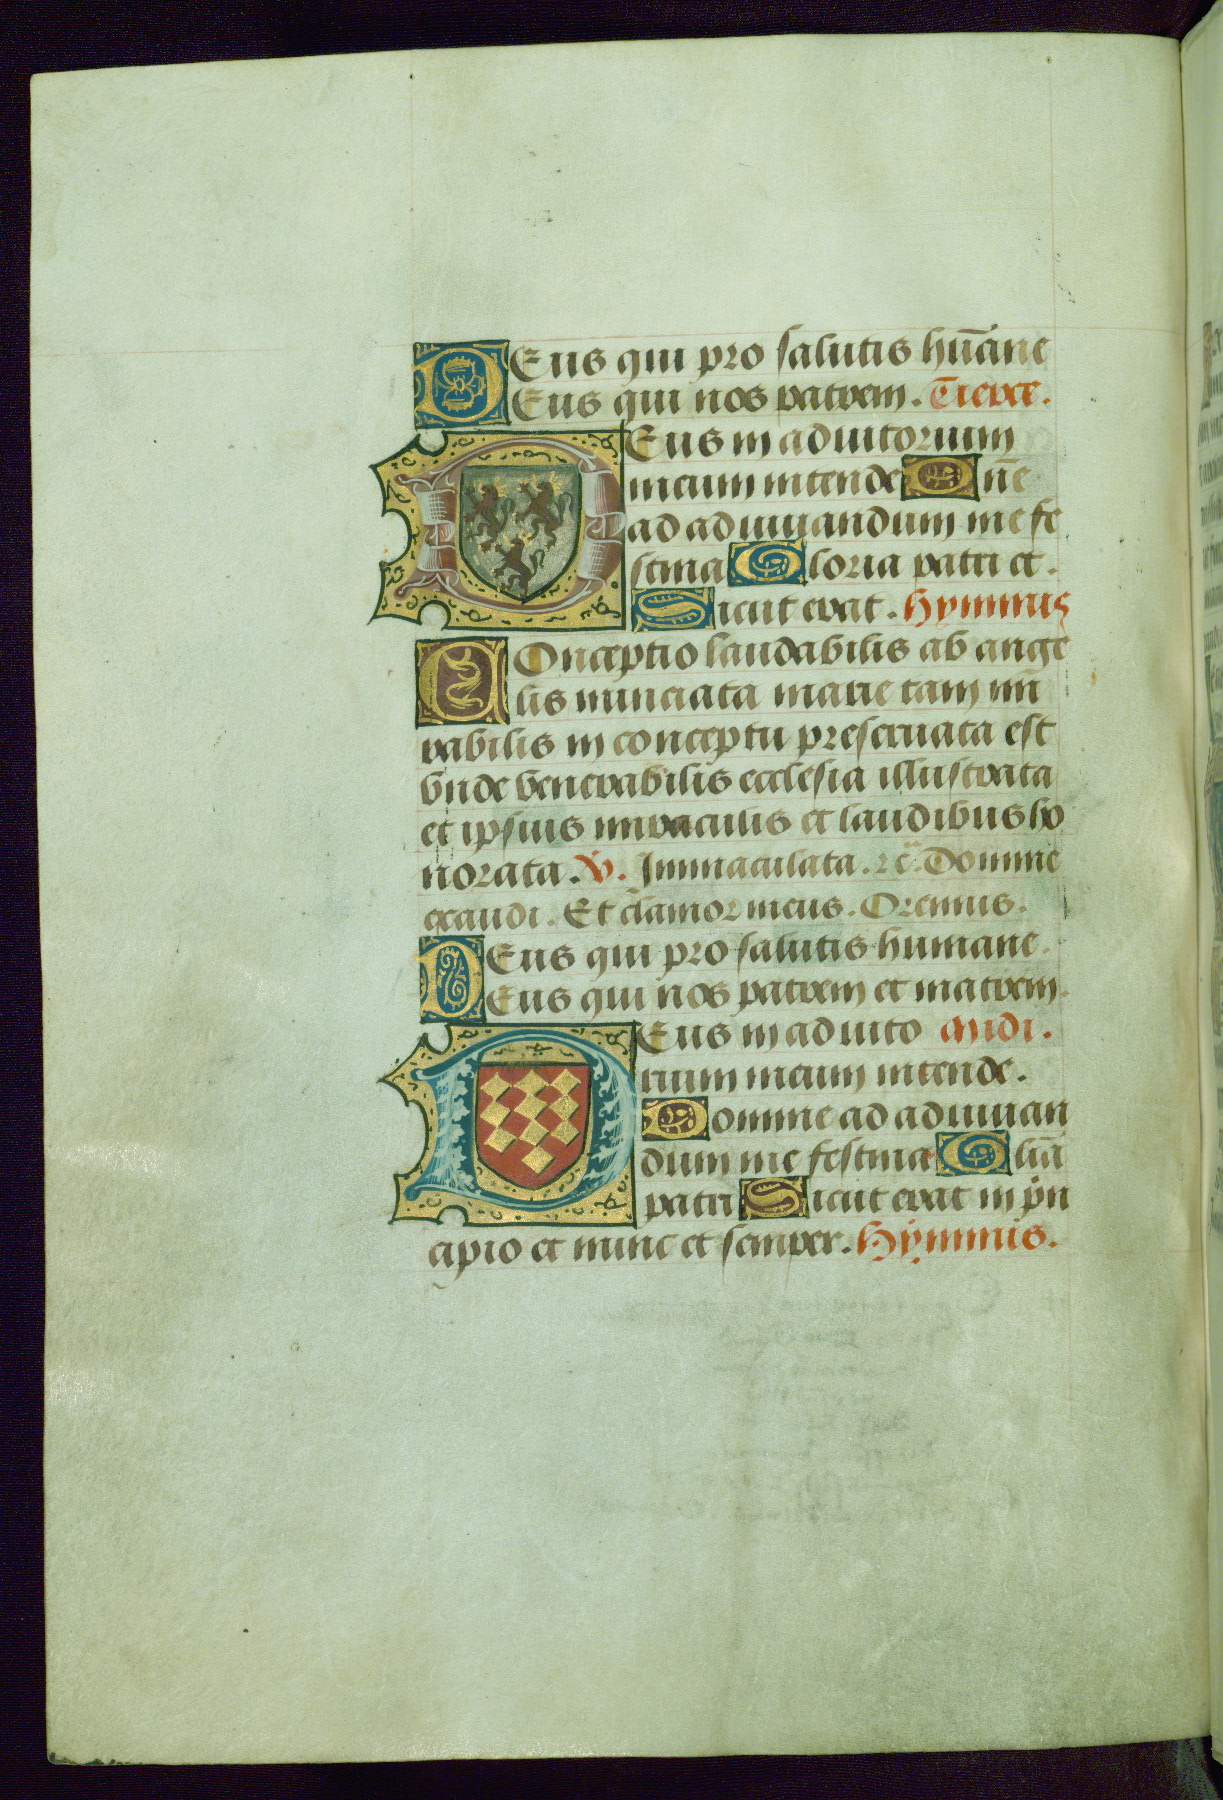 Deus qui pro salutis hūane
Deus qui nos patrem. Tierce.
Deus in adiutorium
meum intende Dn̄e
ad adiuuandum me fe
stina Gloria patri et.
Sicut erat. Hymnus
Conceptio laudabilis ab ange
lis nunciata marie tam mīr
rabilis in conceptu preseruata est
vnde venerabilis ecclesia illustrata
et ipsius miraculis et laudibus ho
norata. V. Immaculata. rē. Domine
exaudi. Et clamor meus. Oremus.
Deus qui pro salutis humane.
Deus qui nos patrem et matrem.
Deus in adiuto Midi.
rium meum intende.
Domine ad adiuuan
dum me festina Gliā
patri Sicut erat in prin
cipio et nunc et semper. Hymnus.